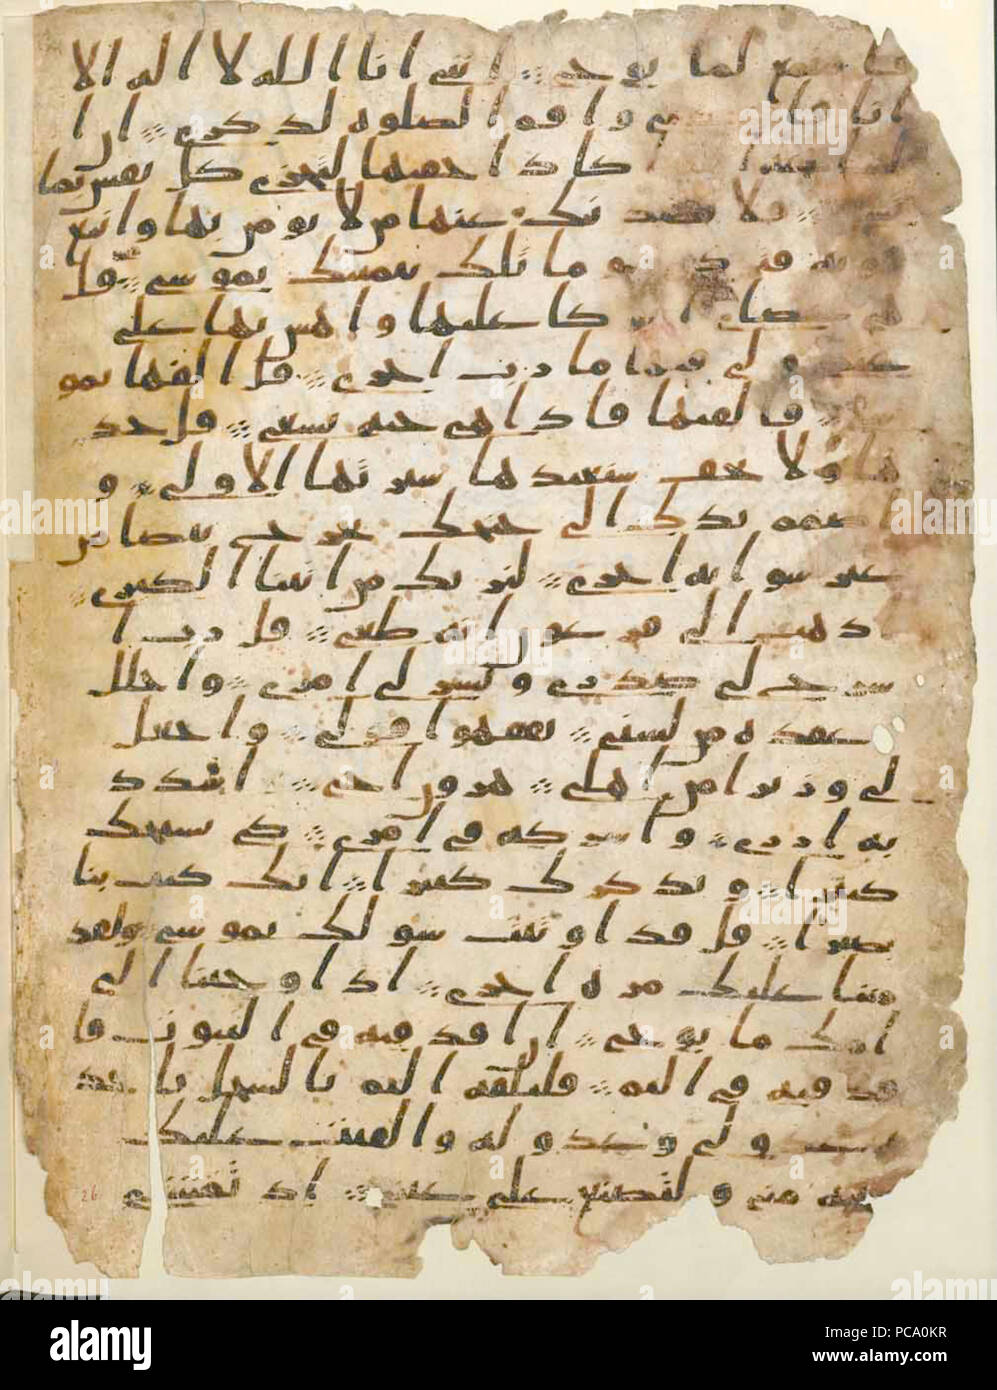 فاستمع لما يوحى انني انا الله لا اله الا
انا فاعبدني واقم الصلوه لذكري ان ا
كاد اخفيها لتجزى كل نفس بما
فلا يصدنك عنها من لا يومن بها واتبع
هويه فتردى وما تلك بيمينك يموسى قل
هي عصاي عليها واهش بها على
غنمي ولي فيها مارب اخرى قل القها يمو
فالقيها فاذا هي حيه تسعى قل خذ
ها ولا تخف سنعيدها سيرتها الاولى و
اضمم يدك الى جنحك تخرج بيضا من
غير سو ايه اخرى لنريك من ايتنا الكبرى
ذهب الى فرعون انه طغى قل رب ا
شرح لي صدري ويسر لي امري واحلل
عقده من لسني يفقهوا قولي واجعل
لي وزيرا من اهلي هرون اخي اشدد
به ازري واشركه في امري كي نسبحك
كثيرا ونذكرك كثيرا انك كنت بنا
بصيرا قل قد اوتيت سولك يموسى ولقد
مننا عليك مره اخرى اذ اوحينا الى
امك ما يوحى ان اقذفيه في التبوت فا
قذفيه في اليم فليلقه اليم بالسحل ياخذ
ه عدو لي وعدو له والقيت عليك
محبه مني ولتصنع على عيني اذ تمشي
26
alamy
PCA0KR
www.alamy.com